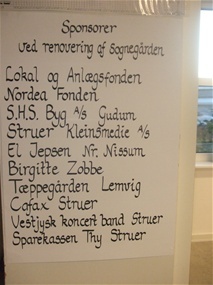 Sponsorer
ved renovering af Sognegården
Lokal og Anlægsfonden
Nordea Fonden
S.H.S. Byg A/S Gudum
Struer Kleinsmedie A/S
El Jepsen Nr. Nissum
Birgitte Zobbe
Tæppegården Lemvig
Cafax Struer
Vestjysk koncert band Struer
Sparekassen Thy Struer